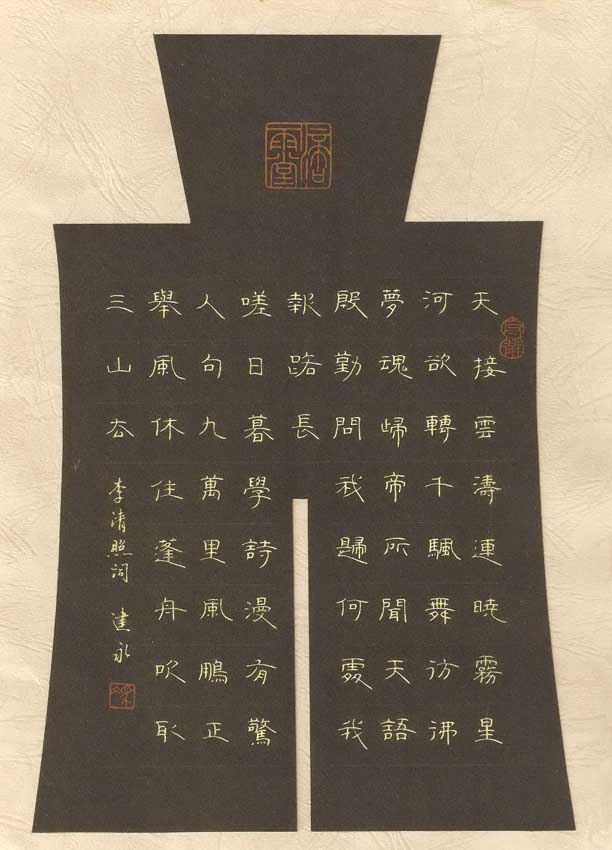 天接雲濤連曉霧星
河欲轉千颿舞彷彿
夢魂歸帝所聞天語
殷勤問我歸何處我
報路長
嗟日暮學詩漫有驚
人句九萬里風鵬正
舉風休住蓬舟吹取
三山去
李清照詞 建永